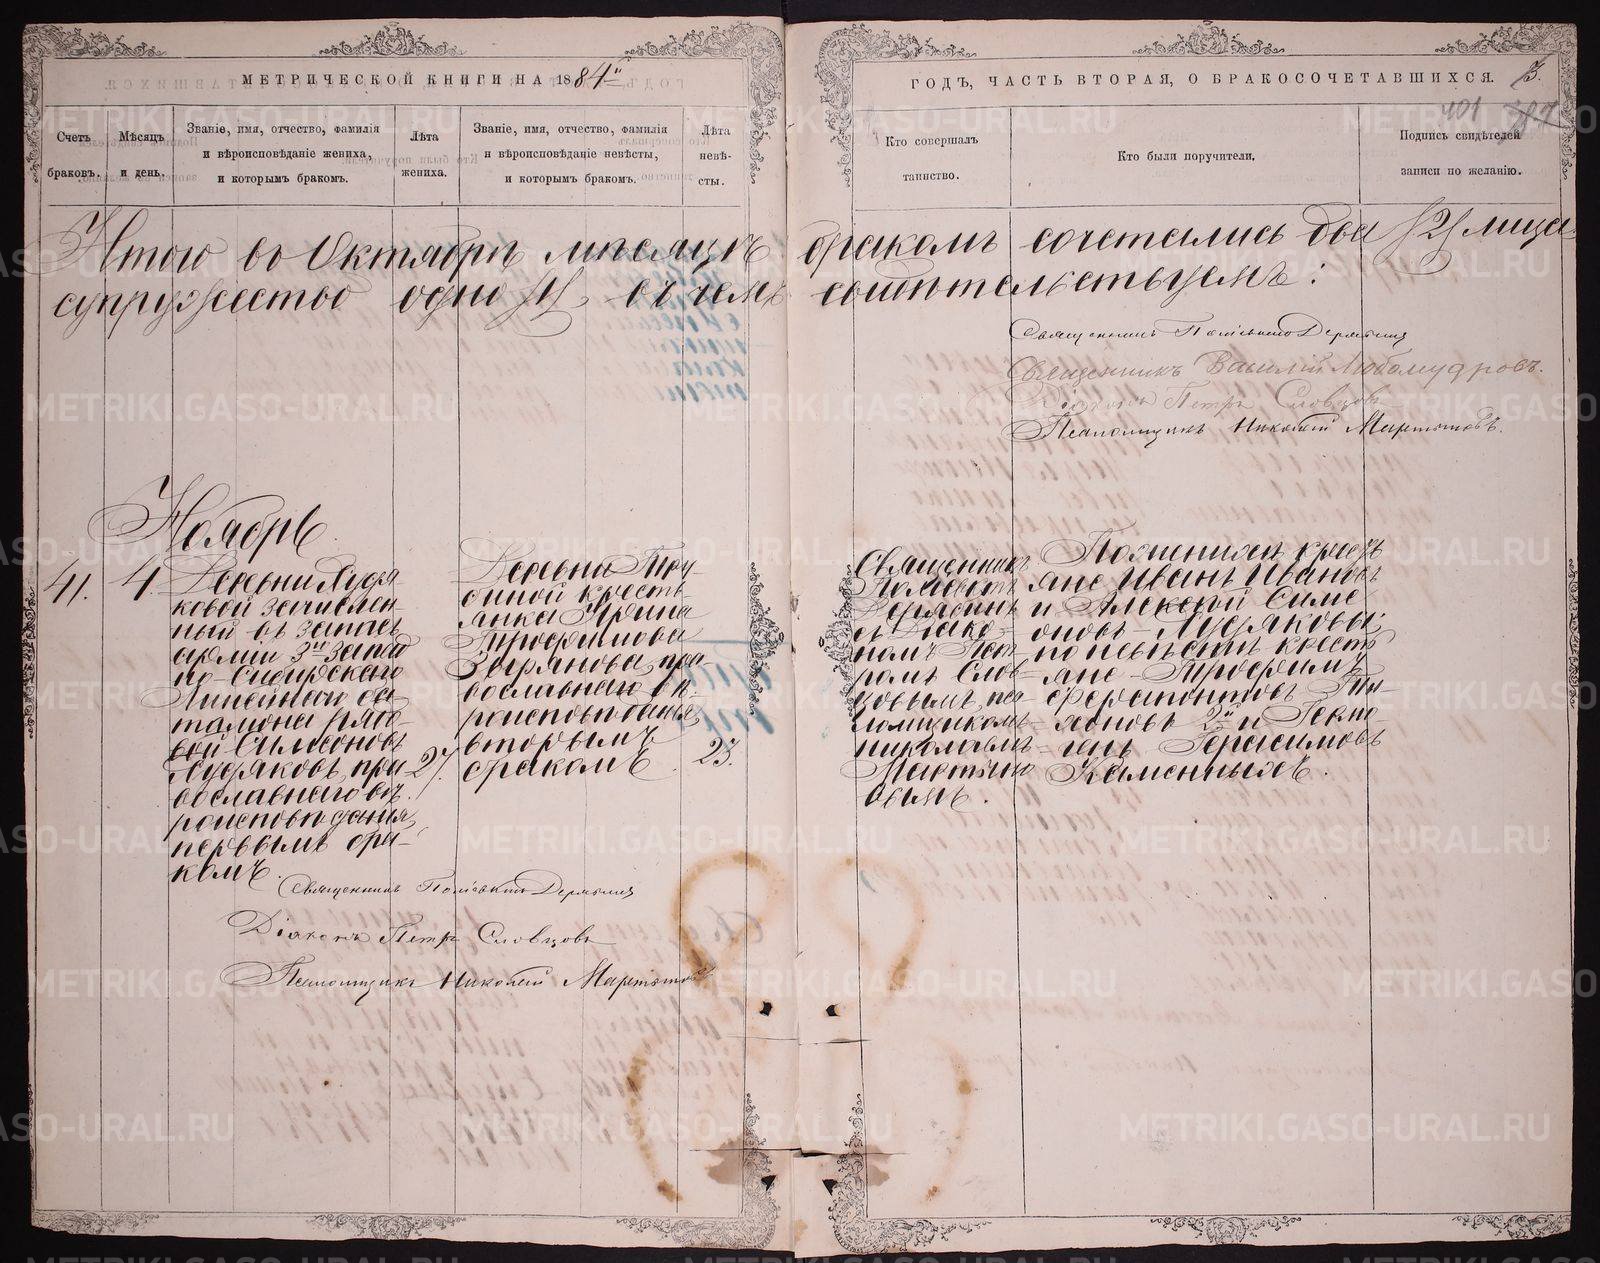 МЕТРИЧЕСКОЙ КНИГИ НА 1884й
ГОДЪ, ЧАСТЬ ВТОРАЯ, О БРАКОСОЧЕТАВШИХСЯ.
401
Счетъ браковъ.
Мѣсяцъ и день.
Званіе, имя, отчество, фамилія
и вѣроисповѣданіе жениха,
и которымъ бракомъ.
Лѣта
жениха.
Званіе, имя, отчество, фамилія
и вѣроисповѣданіе невѣсты,
и которымъ бракомъ.
Лѣта
невѣ-
сты.
Кто совершалъ
таинство.
Кто были поручители.
Подпись свидѣтелей
записи по желанію.
Итого во Октябрѣ мѣсяцѣ бракомъ сочетались два /2/ лица
супружество одно /1/, въ чемъ свидѣтельствуемъ:
Священникъ Поліевктъ
Священникъ Василій Любомудровъ.
Діаконъ Петръ Словцовъ
Псаломщикъ Николай Мартыновъ.
Ноябрь
41.
4.
Деревни
ковой зачислен-
ный въ запасъ
арміи 3й Запад
но-Сибирскаго
Линейнаго ба
таліона рядо-
вой Симеоновъ
при
вославнаго вѣ-
роисповѣданія,
первымъ бра-
комъ.
27.
Деревни
синой кресть-
янка Ирина
Трофимова
пра-
вославнаго вѣ
роисповѣданія,
вторымъ
бракомъ.
23.
Священникъ
Поліевктъ
съ Діако-
номъ Пет-
ромъ Слов-
цовымъ, пса
ломщикомъ
Николаемъ
Мартыно
вымъ.
По женихѣ кресть
яне Иванъ Ивановъ
и Алексѣй Симе
оновъ
по невѣстѣ кресть
яне Трофимъ
Ферапонтовъ
2й и
генъ Герасимовъ
Каменныхъ.
Священникъ Поліевктъ
Діаконъ Петръ Словцовъ
Псаломщикъ Николай Мартыновъ
METRIKI.GASO-URAL.RU